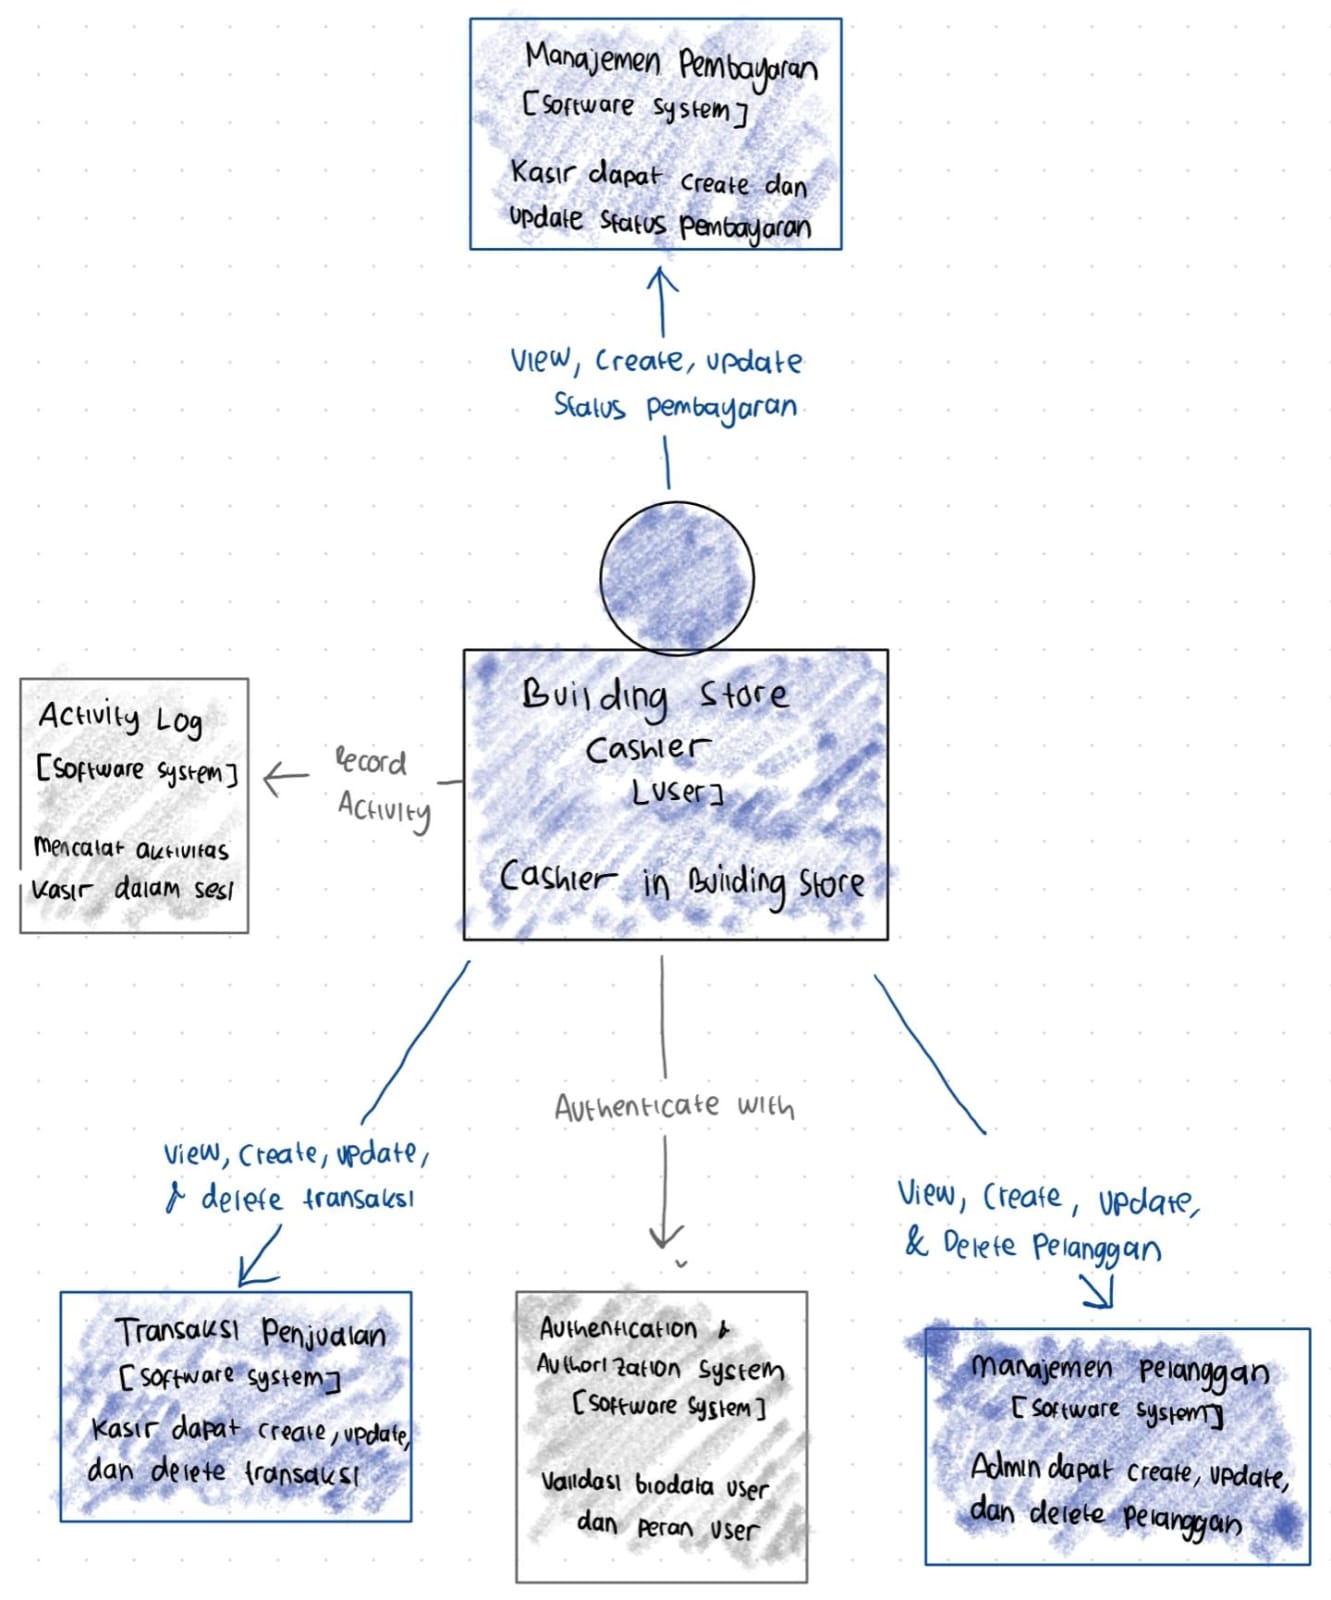 Manajemen Pembayaran
[Software System]
Kasir dapat create dan
update status pembayaran
View, Create, update
Status pembayaran
Building Store
Cashier
[User]
Cashier in Building Store
Record
Activity
Activity Log
[Software System]
Mencatat aktivitas
kasir dalam sesi
View, Create, update,
& delete transaksi
Authenticate with
View, Create, update,
& Delete Pelanggan
Transaksi Penjualan
[Software System]
Kasir dapat create, update,
dan delete transaksi
Authentication &
Authorization System
[Software System]
Validasi biodata user
dan peran user
Manajemen Pelanggan
[Software System]
Admin dapat create, update,
dan delete pelanggan